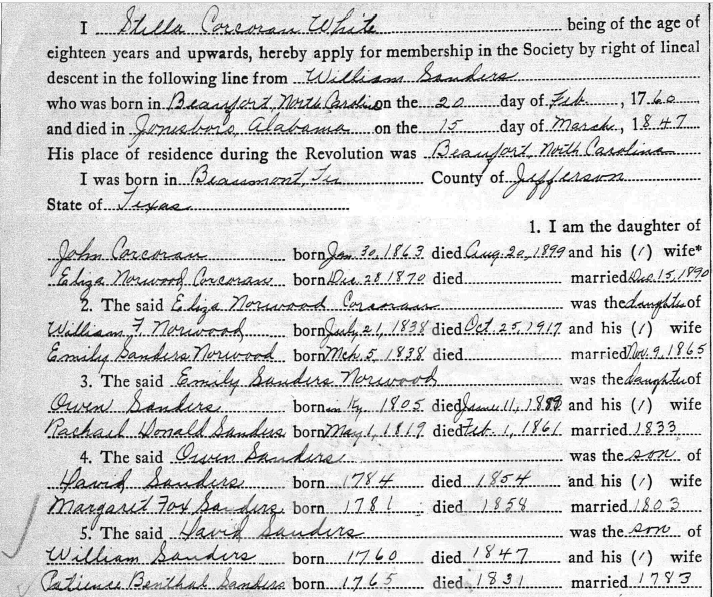 I Stella Corcoran White being of the age of
eighteen years and upwards, hereby apply for membership in the Society by right of lineal
descent in the following line from William Sanders
who was born in Beaufort, North Carolina on the 20 day of Feb. , 1760
and died in Jonesboro, Alabama on the 15 day of March , 1847
His place of residence during the Revolution was Beaufort, North Carolina
I was born in Beaumont, Tex County of Jefferson
State of Texas
1. I am the daughter of
John Corcoran born Jan 30, 1863 died Aug. 20, 1899 and his (1) wife*
Eliza Norwood Corcoran born Dec. 28 1870 died married Dec. 15, 1890
2. The said Eliza Norwood Corcoran was the daughter of
William F. Norwood born July 21, 1838 died Oct. 25, 1917 and his (1) wife
Emily Sanders Norwood born Mch. 5, 1838 died married Nov. 9, 1865
3. The said Emily Sanders Norwood was the daughter of
Owen Sanders born in Ky. 1805 died 11, and his (1) wife
Rachael Donald Sanders born May 1, 1819 died Feb. 1, 1861 married 1833
4. The said Owen Sanders was the son of
David Sanders born 1784 died 1854 and his (1) wife
Margaret Fox Sanders born 1781 died 1858 married 1803
5. The said David Sanders was the son of
William Sanders born 1760 died 1847 and his (1) wife
Patience Benthal Sanders born 1765 died 1831 married 1783